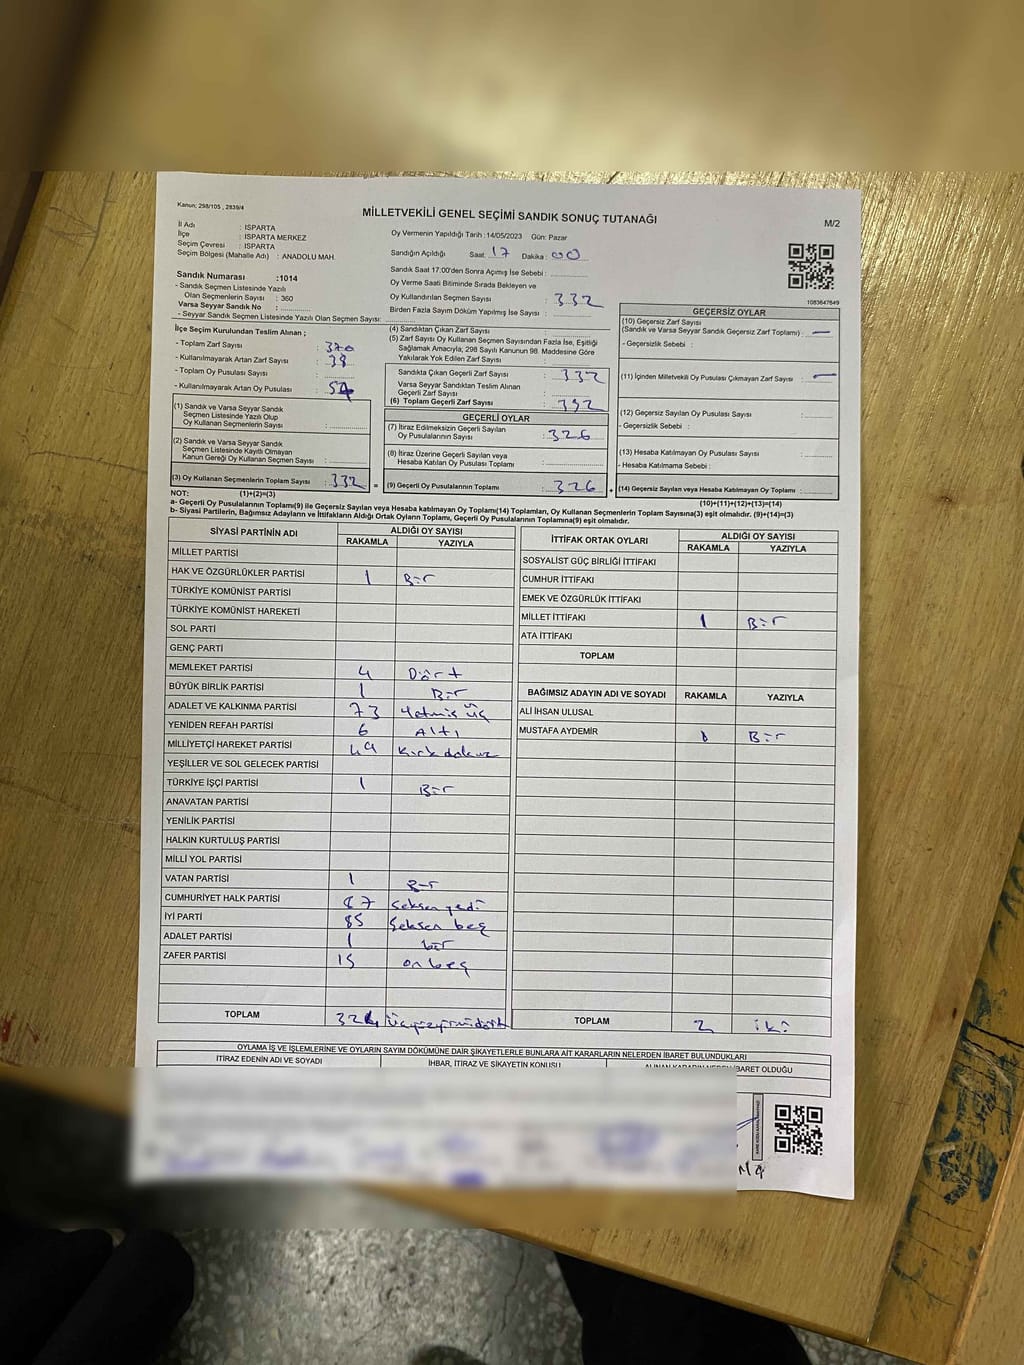 Kanun; 298/105 , 2839/4
MİLLETVEKİLİ GENEL SEÇİMİ SANDIK SONUÇ TUTANAĞI
M/2
İl Adı : ISPARTA
İlçe : ISPARTA MERKEZ
Seçim Çevresi : ISPARTA
Seçim Bölgesi (Mahalle Adı) : ANADOLU MAH.
Oy Vermenin Yapıldığı Tarih : 14/05/2023 Gün: Pazar
Sandığın Açıldığı Saat: 17 Dakika : 00
Sandık Saat 17:00'den Sonra Açımış İse Sebebi :
Oy Verme Saati Bitiminde Sırada Bekleyen ve
Oy Kullandırılan Seçmen Sayısı : 332
Birden Fazla Sayım Döküm Yapılmış İse Sayısı :
Sandık Numarası :1014
- Sandık Seçmen Listesinde Yazılı
Olan Seçmenlerin Sayısı : 360
Varsa Seyyar Sandık No :
- Seyyar Sandık Seçmen Listesinde Yazılı Olan Seçmen Sayısı:
İlçe Seçim Kurulundan Teslim Alınan ;
- Toplam Zarf Sayısı : 370
- Kullanılmayarak Artan Zarf Sayısı : 38
- Toplam Oy Pusulası Sayısı :
- Kullanılmayarak Artan Oy Pusulası :
(1) Sandık ve Varsa Seyyar Sandık
Seçmen Listesinde Yazılı Olup
Oy Kullanan Seçmenlerin Sayısı :
(2) Sandık ve Varsa Seyyar Sandık
Seçmen Listesinde Kayıtlı Olmayan
Kanun Gereği Oy Kullanan Seçmen Sayısı :
(3) Oy Kullanan Seçmenlerin Toplam Sayısı : 332 =
(4) Sandıktan Çıkan Zarf Sayısı :
(5) Zarf Sayısı Oy Kullanan Seçmen Sayısından Fazla İse, Eşitliği
Sağlamak Amacıyla; 298 Sayılı Kanunun 98. Maddesine Göre
Yakılarak Yok Edilen Zarf Sayısı :
Sandıkta Çıkan Geçerli Zarf Sayısı : 332
Varsa Seyyar Sandıktan Teslim Alınan
Geçerli Zarf Sayısı :
(6) Toplam Geçerli Zarf Sayısı : 332
GEÇERLİ OYLAR
(7) İtiraz Edilmeksizin Geçerli Sayılan
Oy Pusulalarının Sayısı : 326
(8) İtiraz Üzerine Geçerli Sayılan veya
Hesaba Katılan Oy Pusulası Toplamı :
(9) Geçerli Oy Pusulalarının Toplamı : 326 +
1083647649
GEÇERSİZ OYLAR
(10) Geçersiz Zarf Sayısı
(Sandık ve Varsa Seyyar Sandık Geçersiz Zarf Toplamı) : —
- Geçersizlik Sebebi :
(11) İçinden Milletvekili Oy Pusulası Çıkmayan Zarf Sayısı : —
(12) Geçersiz Sayılan Oy Pusulası Sayısı :
- Geçersizlik Sebebi :
(13) Hesaba Katılmayan Oy Pusulası Sayısı :
- Hesaba Katılmama Sebebi :
(14) Geçersiz Sayılan veya Hesaba Katılmayan Oy Toplamı :
NOT: (1)+(2)=(3) (10)+(11)+(12)+(13)=(14)
a- Geçerli Oy Pusulalarının Toplamı(9) ile Geçersiz Sayılan veya Hesaba katılmayan Oy Toplamı(14) Toplamları, Oy Kullanan Seçmenlerin Toplam Sayısına(3) eşit olmalıdır. (9)+(14)=(3)
b- Siyasi Partilerin, Bağımsız Adayların ve İttifakların Aldığı Ortak Oyların Toplamı, Geçerli Oy Pusulalarının Toplamına(9) eşit olmalıdır.
SİYASİ PARTİNİN ADI ALDIĞI OY SAYISI
RAKAMLA YAZIYLA
MİLLET PARTİSİ
HAK VE ÖZGÜRLÜKLER PARTİSİ 1 Bir
TÜRKİYE KOMÜNİST PARTİSİ
TÜRKİYE KOMÜNİST HAREKETİ
SOL PARTİ
GENÇ PARTİ
MEMLEKET PARTİSİ 4 Dört
BÜYÜK BİRLİK PARTİSİ 1 Bir
ADALET VE KALKINMA PARTİSİ 73 Yetmiş üç
YENİDEN REFAH PARTİSİ 6 Altı
MİLLİYETÇİ HAREKET PARTİSİ 49 Kırk dokuz
YEŞİLLER VE SOL GELECEK PARTİSİ
TÜRKİYE İŞÇİ PARTİSİ 1 Bir
ANAVATAN PARTİSİ
YENİLİK PARTİSİ
HALKIN KURTULUŞ PARTİSİ
MİLLİ YOL PARTİSİ
VATAN PARTİSİ 1 Bir
CUMHURİYET HALK PARTİSİ 87 Seksen yedi
İYİ PARTİ 85 Seksen beş
ADALET PARTİSİ 1 bir
ZAFER PARTİSİ 15 on beş
TOPLAM 324 Üçyüzyirmidört
İTTİFAK ORTAK OYLARI ALDIĞI OY SAYISI
RAKAMLA YAZIYLA
SOSYALİST GÜÇ BİRLİĞİ İTTİFAKI
CUMHUR İTTİFAKI
EMEK VE ÖZGÜRLÜK İTTİFAKI
MİLLET İTTİFAKI 1 Bir
ATA İTTİFAKI
TOPLAM
BAĞIMSIZ ADAYIN ADI VE SOYADI RAKAMLA YAZIYLA
ALİ İHSAN ULUSAL
MUSTAFA AYDEMİR 1 Bir
TOPLAM 2 iki
OYLAMA İŞ VE İŞLEMLERİNE VE OYLARIN SAYIM DÖKÜMÜNE DAİR ŞİKAYETLERLE BUNLARA AİT KARARLARIN NELERDEN İBARET BULUNDUKLARI
İTİRAZ EDENİN ADI VE SOYADI İHBAR, İTİRAZ VE ŞİKAYETİN KONUSU ALINAN KARARIN NEDEN İBARET OLDUĞU